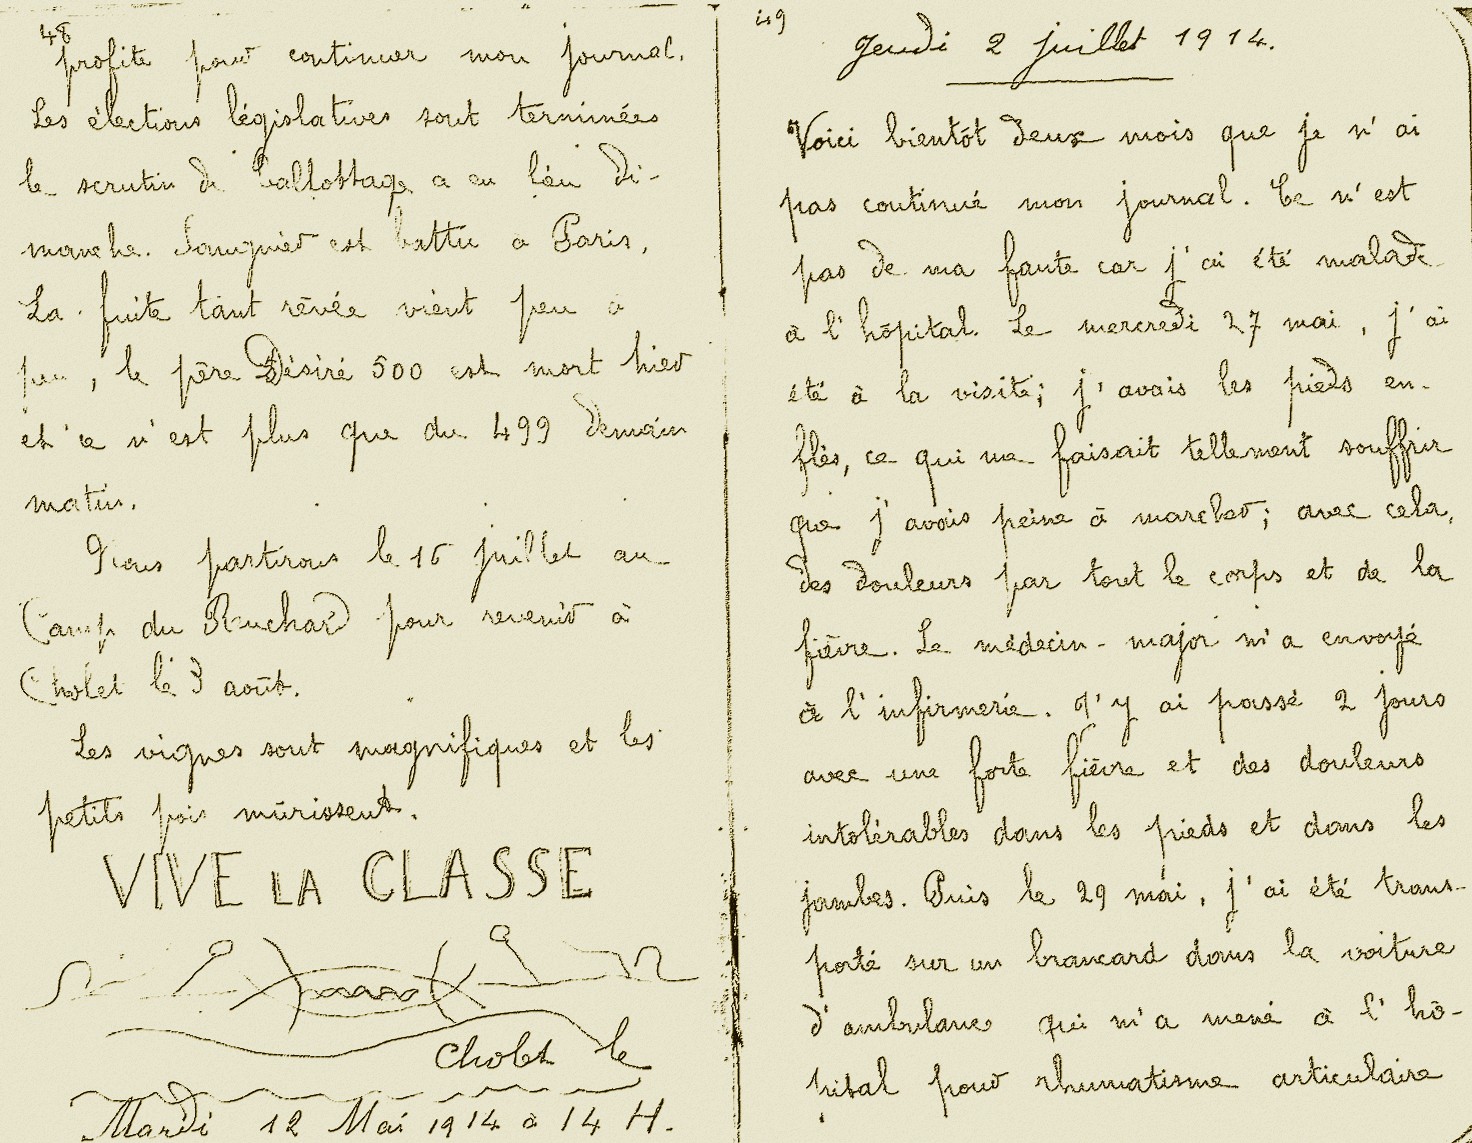 48
profite pour continuer mon journal.
Les élections législatives sont terminées
le scrutin de ballottage a eu lieu di-
manche. Saugnier est battu à Paris.
La fuite tant rêvée vient peu à
peu, le père Désiré 500 est mort hier
et ce n'est plus que du 499 demain
matin.
Nous partirons le 15 juillet au
Camp du Ruchard pour revenir à
Cholet le 3 août.
Les vignes sont magnifiques et les
petits pois mûrissent.
VIVE LA CLASSE
Cholet le
Mardi 12 Mai 1914 à 14 H.
49
Jeudi 2 juillet 1914.
Voici bientôt deux mois que je n'ai
pas continué mon journal. Ce n'est
pas de ma faute car j'ai été malade
à l'hôpital. Le mercredi 27 mai, j'ai
été à la visite; j'avais les pieds en-
flés, ce qui me faisait tellement souffrir
que j'avais peine à marcher; avec cela,
des douleurs par tout le corps et de la
fièvre. Le médecin-major m'a envoyé
à l'infirmerie. J'y ai passé 2 jours
avec une forte fièvre et des douleurs
intolérables dans les pieds et dans les
jambes. Puis le 29 mai, j'ai été trans-
porté sur un brancard dans la voiture
d'ambulance qui m'a mené à l'hô-
pital pour rhumatisme articulaire